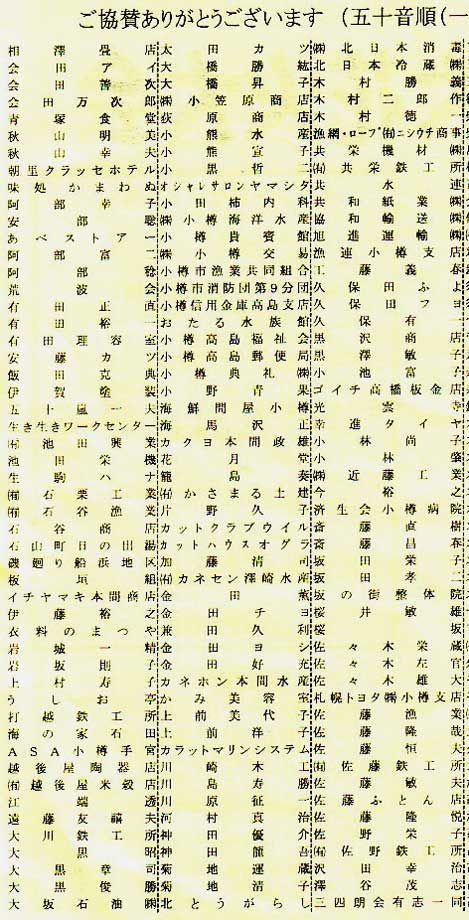 ご協賛ありがとうございます (五十音順(一
相澤畳店
会田アイ
会田善次
会田万次郎
青塚食堂
秋山明美
秋山幸夫
朝里クラッセホテル
味処かまわぬ
阿部幸子
安部聡
あべストアー
阿部富二
阿部稔
荒波会
有田正直
有田裕一
有田理容室
安藤カツ
飯田克典
伊賀塗装
五十嵐一夫
生き生きワークセンター
㈲池田興業
池田栄機
生駒ハナ
㈲石栗工業
㈲石谷漁業
石谷商店
石山町日の出湯
磯廻り船浜地区
板垣組
イチヤマキ本間商店
伊藤裕之
衣料のまつや
岩城一精
岩坂則子
上村寿子
うしお亭
打越鉄工所
海の家石田
ASA小樽手宮
越後屋陶器店
㈲越後屋米穀店
江端透
遠藤友譆夫
大川鉄工所
大黒昭
大黒章司
大黒俊勝
大坂石油㈱
太田カツ
大橋勝紘
大橋昇子
㈱小笠原商店
荻原商店
小熊水産
小熊宣子
小黒哲二
オシャレサロンヤマシタ
小田柿内科
㈱小樽海洋水産
小樽貴賓館
㈱小樽交易
小樽市漁業共同組合
小樽市消防団第9分団
小樽信用金庫高島支店
おたる水族館
小樽高島福祉会
小樽高島郵便局
小樽典礼㈱
小野青果
海鮮問屋小樽
海馬沢正
カクヨ本間政雄
花月堂
籠島奏
㈲かさまる土建
片野久子
カットクラブウイル
カットハウスオグラ
加藤清司
㈲カネセン澤崎水産
金田薫
金田チヨ
兼田久利
金田ヨシ
金田好充
カネホン本間水産
かみ美容室
上前美代子
上前洋子
カラットマリンシステム
川崎木工
川島寿勝
川原征一
河村真治
神田優介
神田龍吾
菊地運蔵
菊地清子
北とうがらし
㈱北日本消毒
北日本冷蔵㈱
木村勝義
木村二郎
木村徳一
漁網・ロープ㈲ニシウチ商事
共栄機材㈱
㈲共栄鉄工所
共水連
共和紙業㈱
協和輸送㈱
旭進運輸㈱
漁連小樽支店
工藤義春
久保田ふよ
久保田フヨ
久保有一
黒沢商店
黒澤敏子
小池富子
ゴイチ高橋板金店
光雲寺
幸進タイヤ
小林尚子
小林肇
㈱近藤工業
今裕之
済生会小樽病院
斎藤直樹
斎藤昌春
坂田栄子
坂田孝二
坂の街整体院
桜井敏雄
桜坂
佐々木栄蔵
佐々木左官
佐々木雄大
札幌トヨタ㈱小樽支店
佐藤漁業
佐藤隆哉
佐藤恒夫
㈲佐藤鉄工所
佐藤敏夫
佐藤ふとん店
佐藤隆悦
佐野栄子
㈲佐野鉄工所
沢田幸治
澤谷茂志
三四朗会有志一同